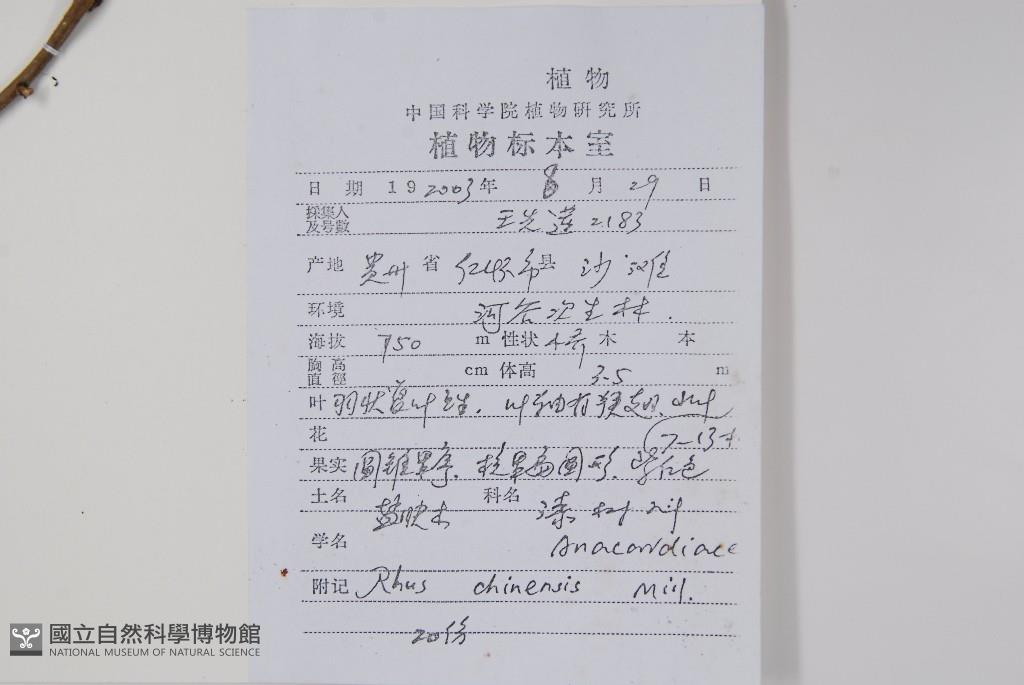 植物
中国科学院植物研究所
植物标本室
日期 19 2003年 8月 29日
採集人及号數 王先莲 2183
产地 贵州省 仁怀市县 沙滩
环境 河谷次生林.
海拔 750 m 性状 小乔木 本
胸高直徑 cm 体高 3-5 m
叶 羽状复叶互生. 叶轴有狭翅. 小叶
花 7-13枚
果实 圆锥果序. 核果扁圆形. 紫红色
土名 盐肤木 科名 漆树科
学名 Anacardiace
附记 Rhus chinensis Mill.
20份
國立自然科學博物館
NATIONAL MUSEUM OF NATURAL SCIENCE